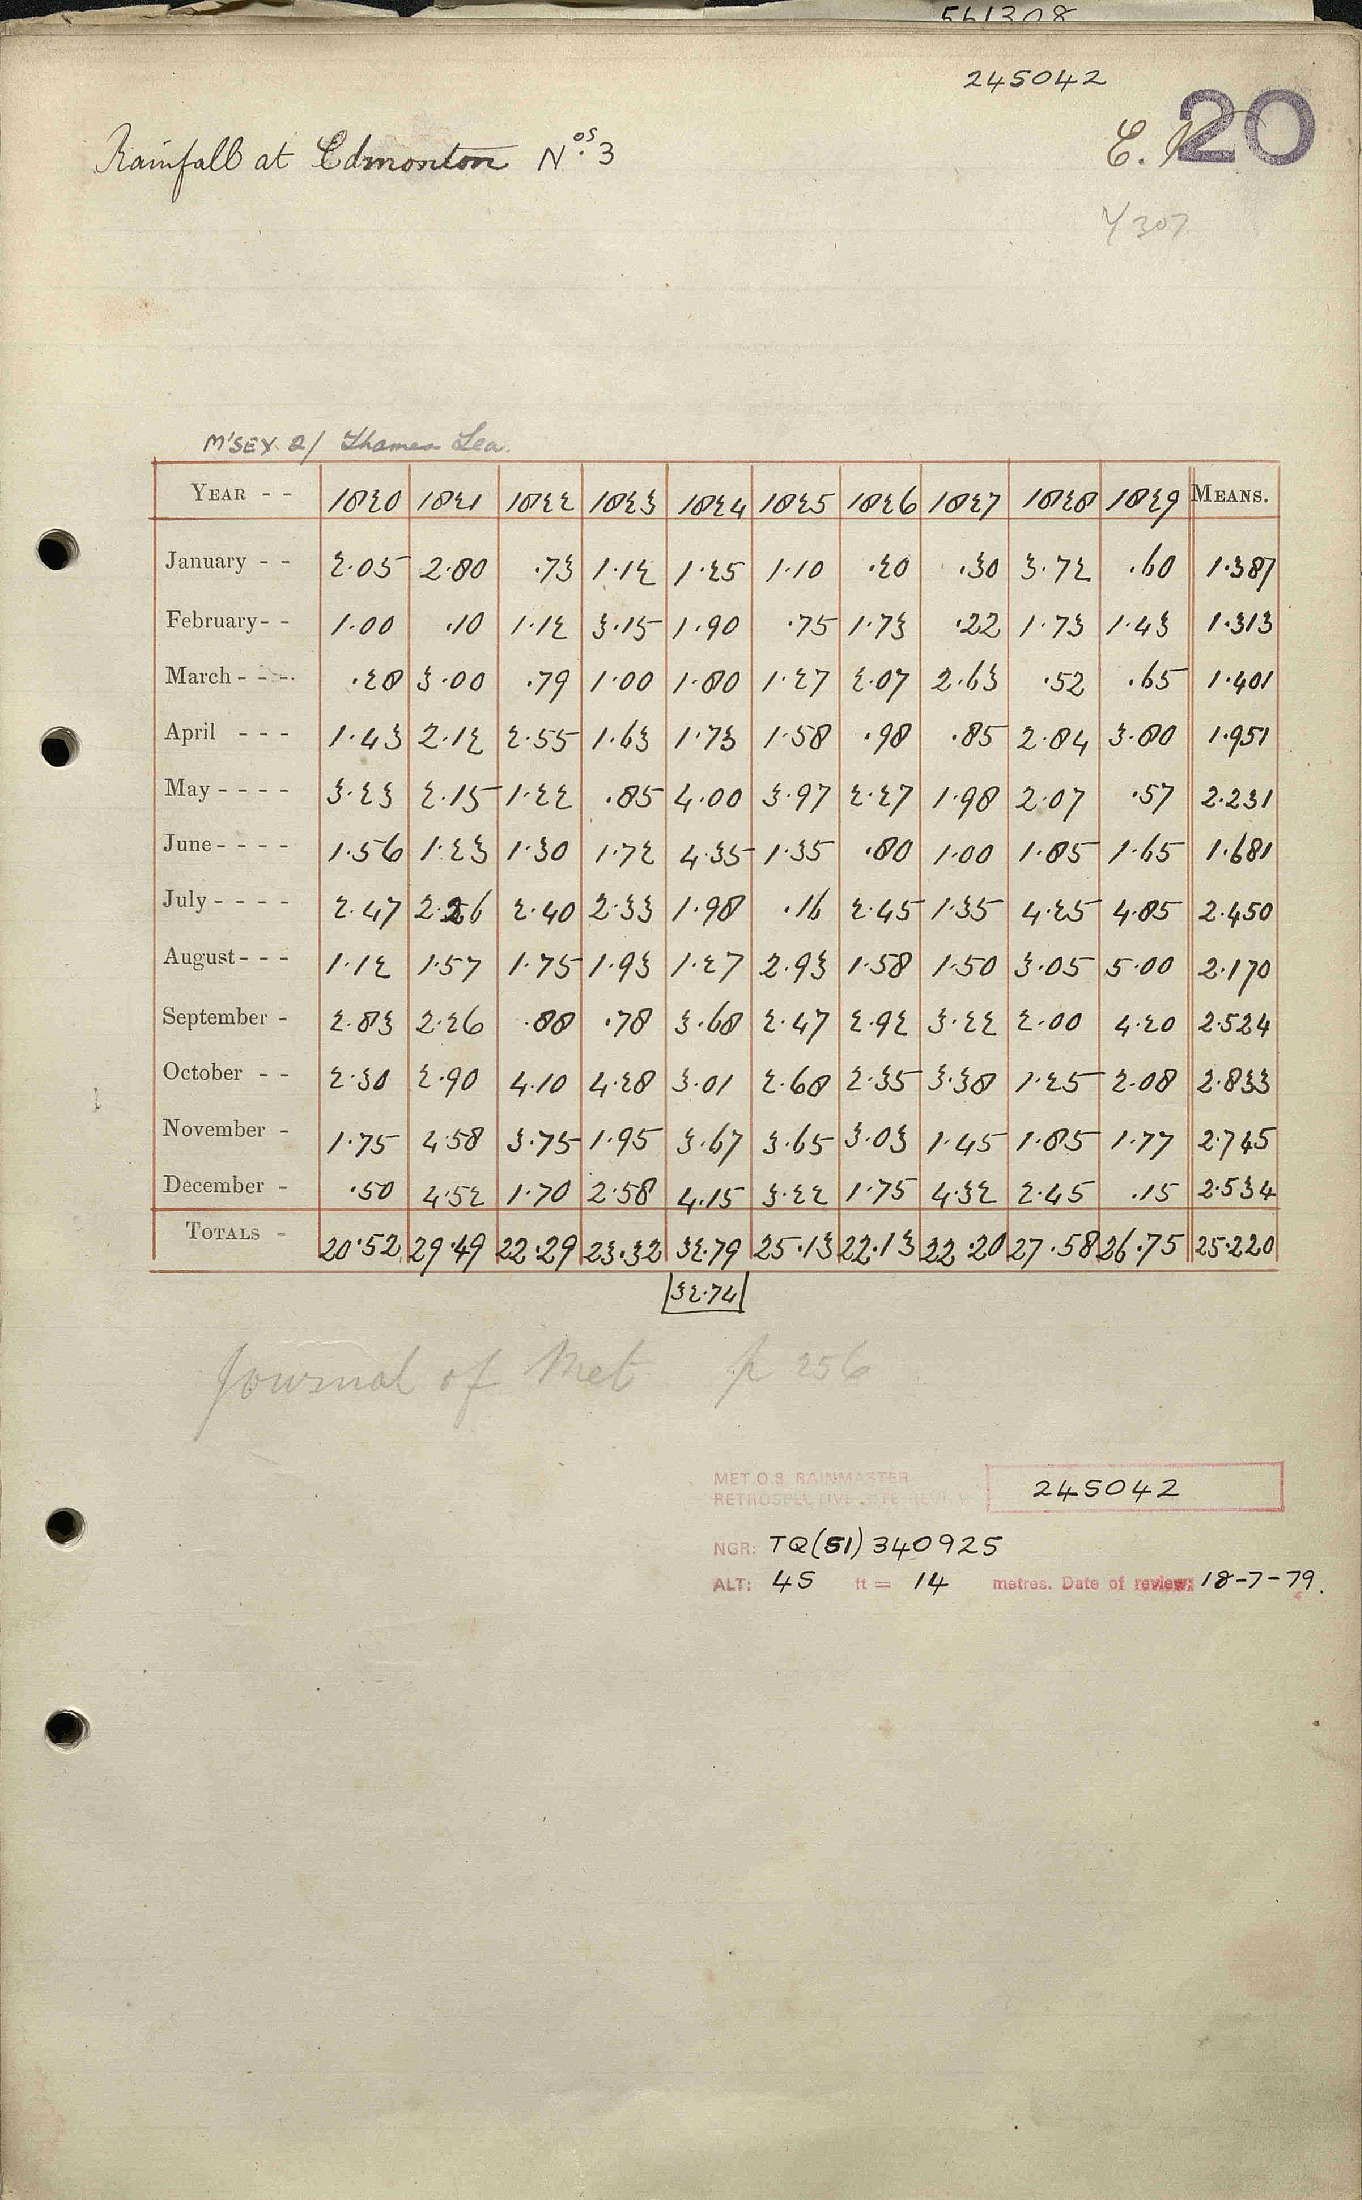 561308
245042
20
Rainfall at Edmonton Nos. 3
E.
Y 307
M'SEX 2/ Thames Lea.
YEAR - - 1820 1821 1822 1823 1824 1825 1826 1827 1828 1829 MEANS.
January - - 2.05 2.80 .73 1.12 1.25 1.10 .20 .30 3.72 .60 1.387
February - - 1.00 .10 1.12 3.15 1.90 .75 1.73 .22 1.73 1.43 1.313
March - - - .28 3.00 .79 1.00 1.80 1.27 2.07 2.63 .52 .65 1.401
April - - - 1.43 2.12 2.55 1.63 1.73 1.58 .98 .85 2.84 3.80 1.951
May - - - - 3.23 2.15 1.22 .85 4.00 3.97 2.27 1.98 2.07 .57 2.231
June - - - - 1.56 1.23 1.30 1.72 4.35 1.35 .80 1.00 1.85 1.65 1.681
July - - - - 2.47 2.26 2.40 2.33 1.98 .16 2.45 1.35 4.25 4.85 2.450
August - - - 1.12 1.57 1.75 1.93 1.27 2.93 1.58 1.50 3.05 5.00 2.170
September - 2.83 2.26 .88 .78 3.68 2.47 2.92 3.22 2.00 4.20 2.524
October - - 2.30 2.90 4.10 4.28 3.01 2.68 2.35 3.38 1.25 2.08 2.833
November - 1.75 4.58 3.75 1.95 3.67 3.65 3.03 1.45 1.85 1.77 2.745
December - .50 4.52 1.70 2.58 4.15 3.22 1.75 4.32 2.45 .15 2.534
TOTALS - 20.52 29.49 22.29 23.32 32.79 25.13 22.13 22.20 27.58 26.75 25.220
32.74
Journal of Met p 256
MET.O.8. RAINMASTER
RETROSPECTIVE SITE REVIEW 245042
NGR: TQ(51) 340925
ALT: 45 ft = 14 metres. Date of review: 18-7-79.